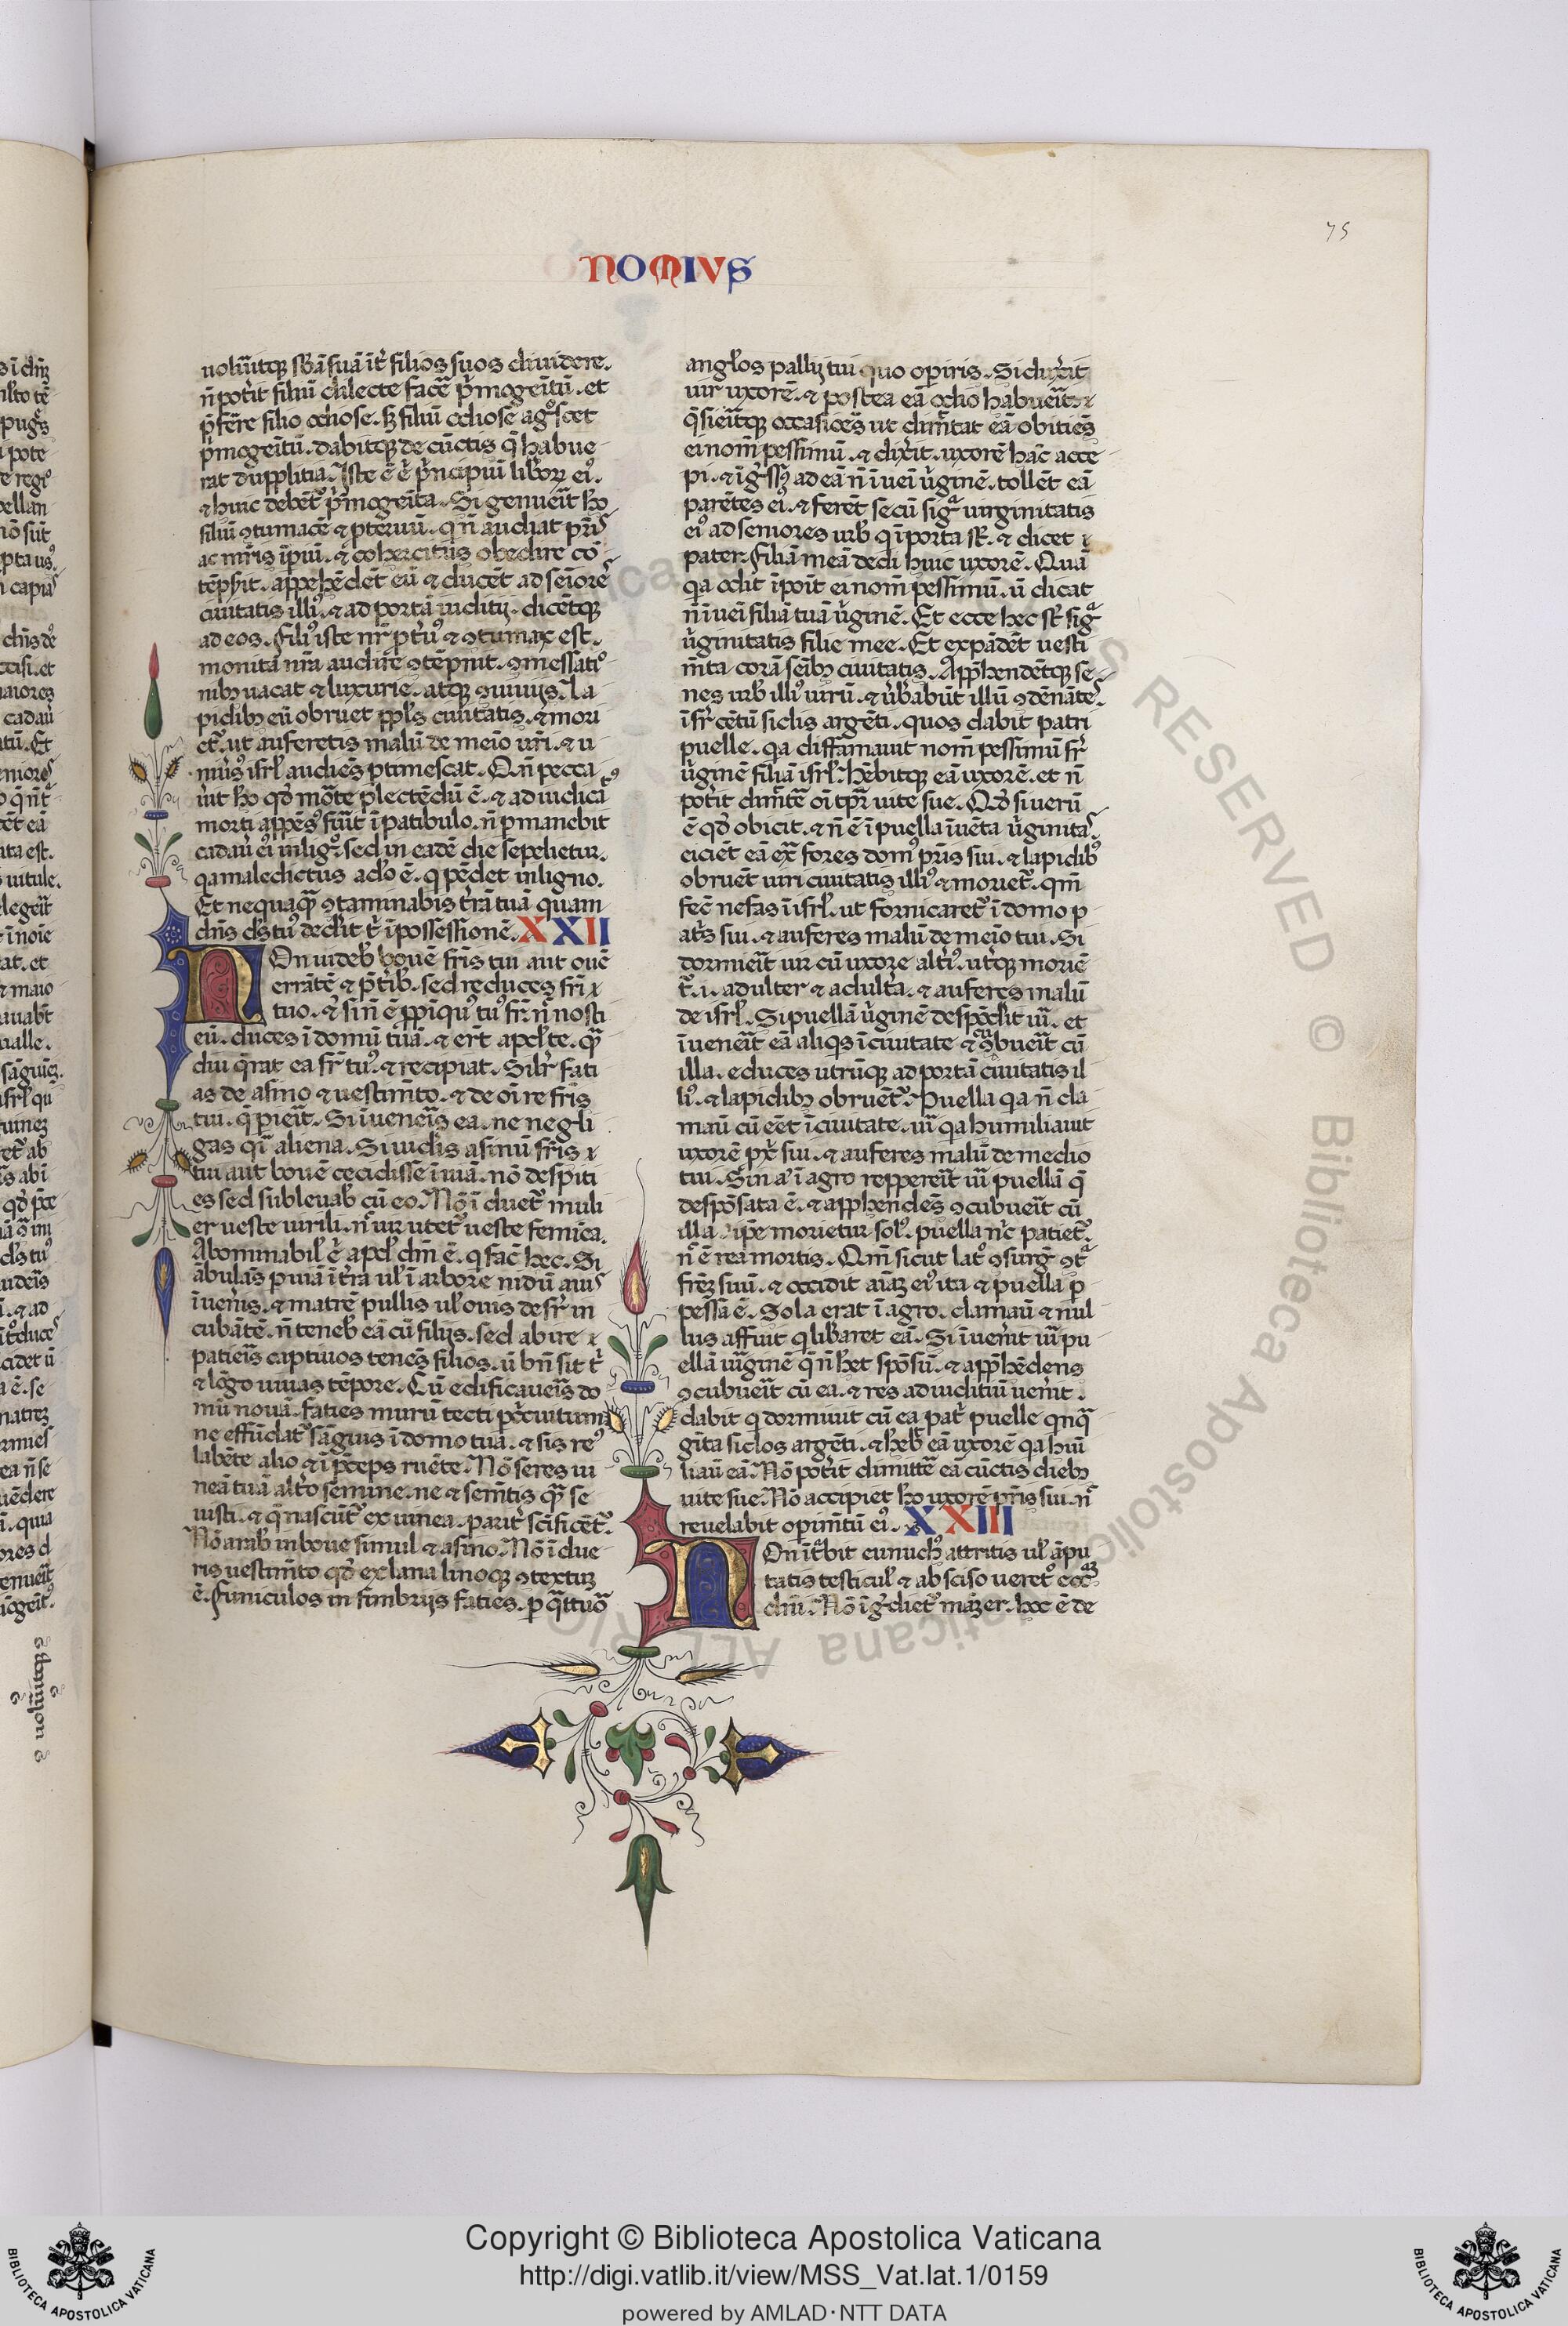 75
NOMIVS
uolu̅itq; sb̅a̅ sua̅ i̅t̓ filios suos diuidere.
n̅ pot̓it filiu̅ dilecte fac̅e p̓mogeitu̅. et
p̅fer̅e filio odiose. sꝫ filiu̅ odiose agnoscet
p̓mogeitu̅. dabitq; de cu̅ctis q̅ habue
rat dupplitia. Iste e̅ e̅ p̓ncipiu̅ lib̓oꝝ ei⁹.
⁊ huic debe̅t̓ p̓mogeita. Si genueit̅ ho̅
filiu̅ ꝯtumace̅ ⁊ ꝓteruu̅. q̓ n̅ audiat pr̅is
ac mr̅is ip̅iu̅. ⁊ cohercitus obedire co̅
te̅psit. appehe̅de̅t eu̅ ⁊ duce̅t ad seiore̅
ciuitatis illi⁹. ⁊ ad porta̅ iuditij. dice̅tq;
ad eos. Fili⁹ iste nr̅ pt̓u⁹ ⁊ ꝯtumax est.
monita nr̅a audire ꝯte̅pnit. ꝯmessati⁰
nibꝫ uacat ⁊ luxurie. atq; ꝯuiuijs. La
pidibꝫ eu̅ obruet ppl̅s ciuitatis. ⁊ mori
et̓. ut auferetis malu̅ de meio ur̅i. ⁊ u
niu̓s⁹ isrl̅ audie̅s ꝑtimescat. Qn̅ pecca
u̓it ho̅ qd̅ mo̅te plecte̅du̅ e̅. ⁊ adiudica⁹
morti appe̅s⁹ fu̅it i̅ patibulo. n̅ ꝑmanebit
cadau̓ ei⁹ in lig̅. sed in eade̅ die sepelietur.
qa maledictus a do̅ e̅. q̓ pe̅det in ligno.
Et nequaq̅ ꝯtaminabis t̓ra̅ tua̅ quam
dn̅s ds̅ tu⁹ ded̓it t̓ i̅ possessione̅. XXII
NOn uideb̓ boue̅ fr̅is tui aut oue̅
erra̅te̅ ⁊ p̅t̓ib̓. sed reduces fr̅i
tuo. ⁊ si n̅ e̅ ꝓpiqu⁹ tu⁹ fr̅. n̅ nosti
eu̅. duces i̅ domu̅ tua̅. ⁊ er̅t apd̓ te. q̅
diu q̅rat ea fr̅ tu⁹. ⁊ recipiat. Silr̅ fati
as de asino ⁊ uestim̅to. ⁊ de oi̅ re fr̅is
tui. q̅ ꝑieit̅. Si i̅ueneis̅ ea. ne negli
gas q̅i aliena. Si uid̓is asinu̅ fr̅is
tui aut boue̅ cecidisse̅ i̅ uia̅. no̅ despiti
es sed subleuab̓ cu̅ eo. No̅ i̅duet̓ muli
er ueste uirili. n̓ uir utet̓ ueste femi̅ea.
Abominabil̓ e̅ apd̓ dm̅ e̅. q̓ fac̓ hec. Si
a̅bula̅s ꝑ uia̅ i̅ t̓ra ul̓ i̅ arbore nidu̅ auis
i̅uen̓is. ⁊ matre̅ pullis ul̓ ouis desr̓ in
cuba̅te̅. n̅ teneb̓ ea̅ cu̅ filijs. sed abire
patieis̅ captiuos tene̅s filios. u̓ bn̅ sit t̓
⁊ lo̅go uiuas te̅pore. Cu̅ edificaueis̅ do
mu̅ noua̅. faties muru̅ tecti ꝑ c̓cuitum
ne effu̅dat̓ sa̅guis i̅ domo tua. ⁊ sis re⁹
labe̅te alio ⁊ i̅ p̓ceps rue̅te. No̅ seres ui
nea̅ tua̅ alt̓o semine. ne ⁊ sem̅tis q̅ se
uisti. ⁊ q̅ nascu̅t̓ ex uinea. parit̓ sc̅ifice̅t̓.
No̅ arab̓ in boue simul ⁊ asino. No̅ i̅due
ris uestim̅to qd̅ ex lana linoq; ꝯtextuꝫ
e̅. Funiculos in fimbrijs faties. ꝑ q̅ttuo
angl̓os pallij tui quo opiris. Si dux̓it
uir uxore̅. ⁊ postea ea̅ odio habueit̅
q̅sieit̅q; occasioe̅s ut dim̅tat ea̅ obitie̅s
ei nom̅ pessimu̅. ⁊ dix̓it. uxore̅ ha̅c acce
pi. ⁊ i̅g̓ss⁹ ad ea̅ n̅ i̅uei̅ u̓gine̅. tolle̅t ea̅
pare̅tes ei⁹. ⁊ fere̅t secu̅ sig̅ uirginitatis
ei⁹ ad seniores urb̓ q̓ i̅ porta st̅. ⁊ dicet
pater. Filia̅ mea̅ dedi huic uxore̅. Qua̅
qa odit i̅poit̅ ei nom̅ pessimu̅. u̓ dicat
n̅ i̅uei̅ filia̅ tua̅ u̓gine̅. Et ecce hec st̅ sig̅
u̓ginitatis filie mee. Et expa̅de̅t uesti
m̅ta cora̅ seibꝫ ciuitatis. App̅hende̅tq; se
nes urb̓ illi⁹ uiru̅. ⁊ u̓b̓abu̅t illu̅ ꝯde̅na̅tes
i̅sr̅ ce̅tu̅ siclis arge̅ti. quos dabit patri
puelle. qa diffamauit nom̅ pessimu̅ sr̅
u̓gine̅ filia̅ isrl̅. he̅bitq; ea̅ uxore̅. et n̅
pot̓it dim̅te̅ oi̅ tp̅r uite sue. Qd̅ si ueru̅
e̅ qd̅ obicit. ⁊ n̅ e̅ i̅ puella i̅ue̅ta u̓ginitas.
eicie̅t ea̅ ex̅ fores dom⁹ pr̅is sui. ⁊ lapidib⁹
obrue̅t uiri ciuitatis illi⁹ ⁊ moriet̓. qm̅
fec̅ nefas i̅ isrl̅. ut fornicaret̓ i̅ domo p
at̓s sui. ⁊ auferes malu̅ de meio tui. Si
dormieit̅ uir cu̅ uxore alt̓i⁹. ut̓q; morie̅
t̓. i. adulter ⁊ adult̓a. ⁊ auferes malu̅
de isrl̅. Si puella̅ u̓gine̅ despo̅d̓it ui̅. et
i̅ueneit̅ ea̅ aliqs i̅ ciuitate ⁊ ꝯcubueit̅ cu̅
illa. educes utru̅q; ad porta̅ ciuitatis il
li⁹. ⁊ lapidibꝫ obrue̅t̓. Puella qa n̅ cla
mau̅ cu̅ ee̅t i̅ ciuitate. ui̅ qa humiliauit
uxore̅ px̅ sui. ⁊ auferes malu̅ de medio
tui. Sin a̅ i̅ agro reppereit̅ ui̅ puella̅ q̅
despo̅sata e̅. ⁊ app̅hende̅s ꝯcubueit̅ cu̅
illa ip̅e morietur sol⁹. puella nc̅ patiet̓.
n̅ e̅ rea mortis. Qm̅ sicut lat⁰ ꝯsurg̅ ꝯt̅
fr̅eꝫ suu̅. ⁊ occidit ai̅aꝫ ei⁹ ita ⁊ puella ꝑ
pessa e̅. Sola erat i̅ agro. clamau̅ ⁊ nul
lus affuit q̓ lib̓aret ea̅. Si i̅uen̓it ui̅ pu
ella̅ uirgine̅ q̅ n̅ h̅et spo̅su̅. ⁊ app̅he̅dens
ꝯcubueit̅ cu̅ ea. ⁊ res ad iuditiu̅ uen̓it.
dabit q̓ dormiuit cu̅ ea pat̓ puelle qnq̅
gi̅ta siclos arge̅ti. ⁊ heb̓ ea̅ uxore̅ qa hu̅i
liau̅ ea̅. No̅ pot̓it dimitte̅ ea̅ cu̅ctis diebꝫ
uite sue. No̅ accipiet ho̅ uxore̅ pr̅is sui. n̅
reuelabit opim̅tu̅ ei⁹. XXIII
NOn i̅t̓bit eunuch⁹ attritis ul̓ a̅pu
tatis testicul̓ ⁊ absciso ueret⁰ ecc̅aꝫ
dn̅i. No̅ i̅g̓diet̓ ma̅zer. hoc e̅ de
Copyright © Biblioteca Apostolica Vaticana
http://digi.vatlib.it/view/MSS_Vat.lat.1/0159
powered by AMLAD·NTT DATA
BIBLIOTECA APOSTOLICA VATICANA
BIBLIOTECA APOSTOLICA VATICANA